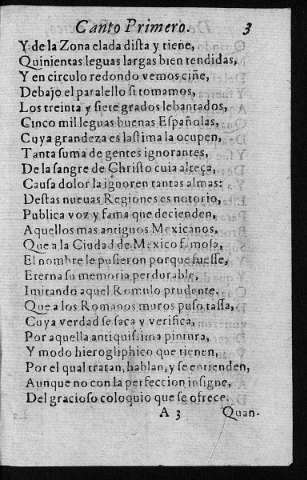 Canto Primero. 3
Y de la Zona elada dista y tiene,
Quinientas leguas largas bien tendidas,
Y en circulo redondo vemos ciñe,
Debajo el paralello si tomamos,
Los treinta y siete grados lebantados,
Cinco mil leguas buenas Españolas,
Cuya grandeza es lastima la ocupen,
Tanta suma de gentes ignorantes,
De la sangre de Christo cuia alteça,
Causa dolor la ignoren tantas almas:
Destas nueuas Regiones es notorio,
Publica voz y fama que decienden,
Aquellos mas antiguos Mexicanos,
Que a la Ciudad de Mexico famosa,
El nombre le pusieron porque fuesse,
Eterna su memoria perdurable,
Imitando aquel Romulo prudente.
Que a los Romanos muros puso tassa,
Cuya verdad se saca y verifica,
Por aquella antiquissima pintura,
Y modo hierogliphico que tienen,
Por el qual tratan, hablan, y se entienden,
Aunque no con la perfeccion insigne,
Del gracioso coloquio que se ofrece.
A 3 Quan-